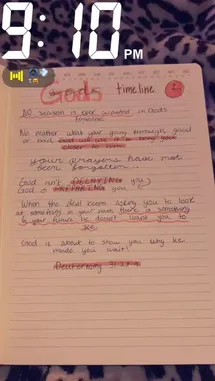 9:10 PM
Gods timeline
No season is ever wasted in Gods
timeline.
No matter what your going through good
or bad, God will use it to bring your
closer to him.
your prayers have not
been forgotten.
God isn't you,
God is you.
When the devil keeps asking you to look
at something in your past, there is something
in your future he doesn't want you to
see.
God is about to show you why he
made you wait!
Deuteronomy